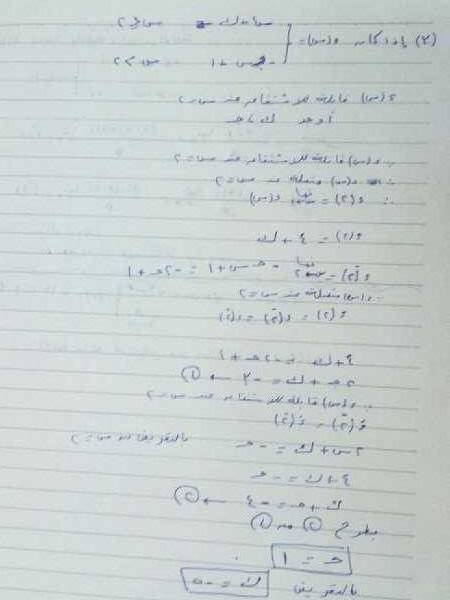 (٢) إذا كان د(س) = { س٢ + ك س ≥ ٢
- حـ س + ١ س < ٢
د(س) قابلة للاشتقاق عند س = ٢
أوجد ك ، حـ
∵ د(س) قابلة للاشتقاق عند س = ٢
∴ د(س) متصلة عند س = ٢
∴ د(٢) = نهـا د(س)
د(٢) = ٤ + ك
د(٢) = نهـا - حـ س + ١ = - ٢حـ + ١
∵ د(س) متصلة عند س = ٢
د(٢) = د(٢) = د(٢)
٤ + ك = - ٢حـ + ١
٢حـ + ك = - ٣ ← (١)
∵ د(س) قابلة للاشتقاق عند س = ٢
د(٢) = د(٢)
٢س + ك = - حـ بالتعويض عن س = ٢
٤ + ك = - حـ
ك + حـ = - ٤ ← (٢)
بطرح (٢) من (١)
حـ = ١
بالتعويض ك = - ٥